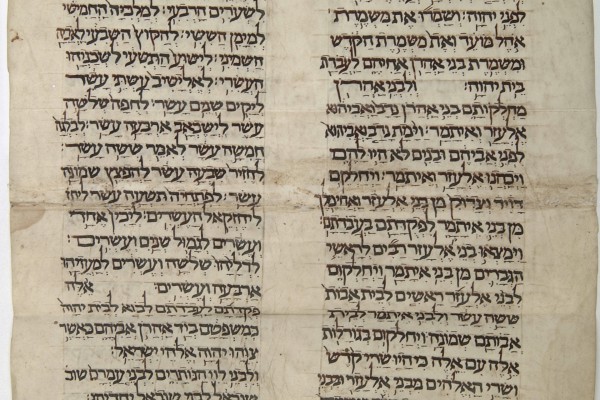 לפני יהוה: ושמרו את משמרת
אהל מועד ואת משמרת הקדש
ומשמרת בני אהרן אחיהם לעבדת
בית יהוה: ולבני אהרן
מחלקותם בני אהרן נדב ואביהוא
אלעזר ואיתמר: וימת נדב ואביהוא
לפני אביהם ובנים לא היו להם
ויכהנו אלעזר ואיתמר: ויחלקם
דויד וצדוק מן בני אלעזר ואחימלך
מן בני איתמר לפקדתם בעבדתם:
וימצאו בני אלעזר רבים לראשי
הגברים מן בני איתמר ויחלקום
לבני אלעזר ראשים לבית אבות
ששה עשר ולבני איתמר לבית
אבותם שמונה: ויחלקום בגורלות
אלה עם אלה כי היו שרי קדש
ושרי האלהים מבני אלעזר ובבני
לשערים הרבעי: למלכיה החמישי
למימן הששי: להקוץ השבעי לאביה
השמיני: לישוע התשעי לשכניהו
העשרי: לאלישיב עשתי עשר
ליקים שנים עשר: לחפה שלשה
עשר לישבאב ארבעה עשר: לבלגה
חמשה עשר לאמר ששה עשר:
לחזיר שבעה עשר להפצץ שמונה
עשר: לפתחיה תשעה עשר
ליחזקאל העשרים: ליכין אחד
ועשרים לגמול שנים ועשרים:
לדליהו שלשה ועשרים למעזיהו
ארבעה ועשרים: אלה
פקדתם לעבדתם לבוא לבית יהוה
כמשפטם ביד אהרן אביהם כאשר
צוהו יהוה אלהי ישראל:
ולבני לוי הנותרים לבני עמרם שוב